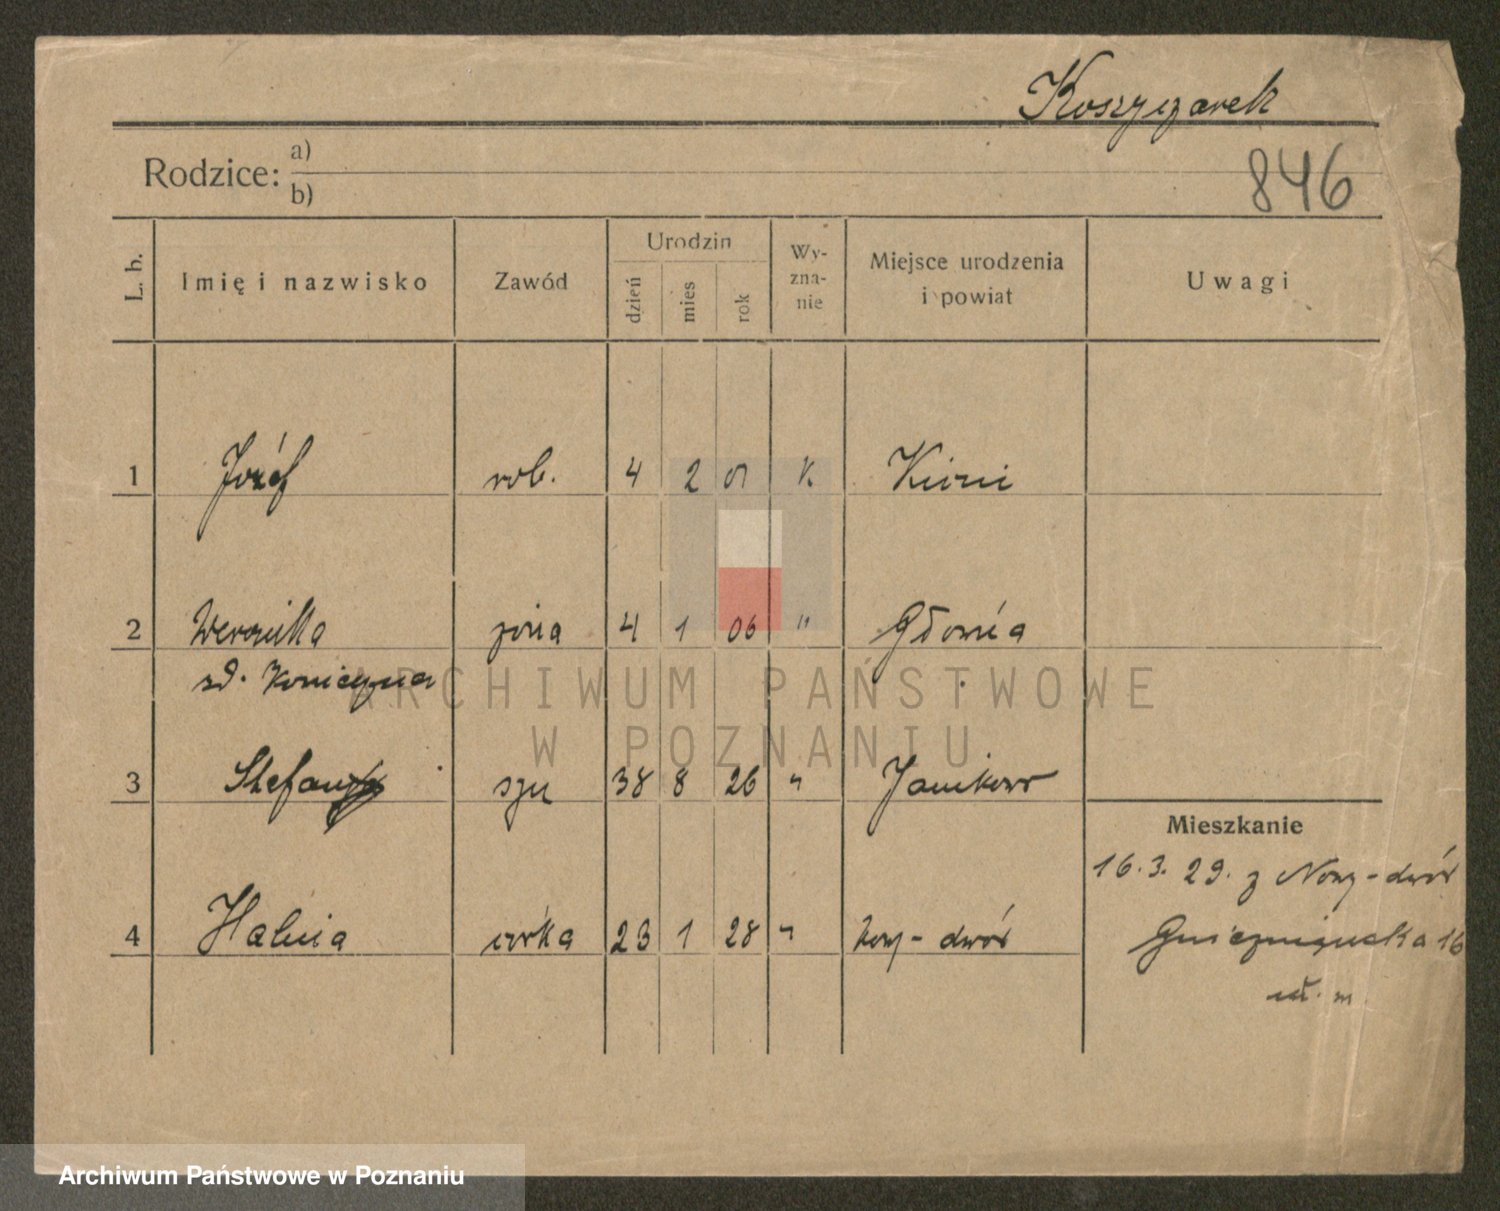 Koszyczarek
Rodzice: a)
b)
846
L. b. Imię i nazwisko Zawód Urodzin dzień mies rok Wy-zna-nie Miejsce urodzenia i powiat Uwagi
1 Józef rob. 4 2 01 K
2 Weronika żona 4 1 06 "
zd.
3 Stefan syn 38 8 26 " Janikowo
Mieszkanie
16.3.29. z Nowy-dwór
4 Halina córka 23 1 28 " Nowy-dwór
Gnieźnieńska 16
wł. m.
ARCHIWUM PAŃSTWOWE
W POZNANIU
Archiwum Państwowe w Poznaniu